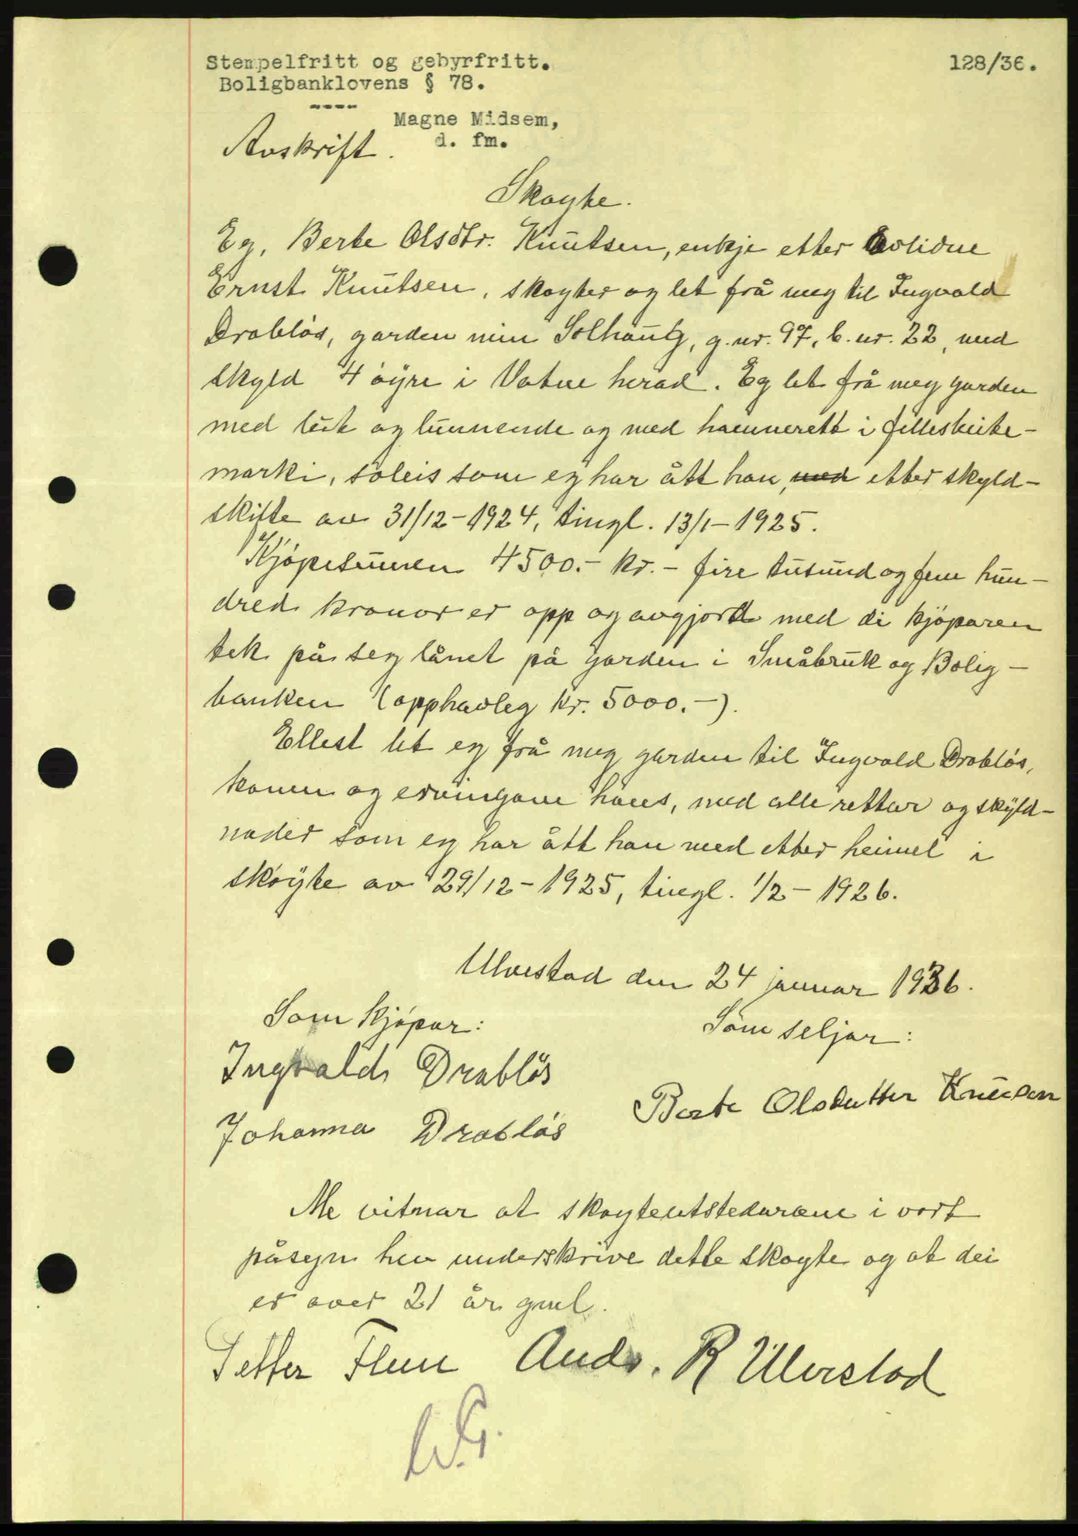 Stempelfritt og gebyrfritt.
128/36.
Boligbanklovens § 78.
----
Magne Midsem,
d. fm.
Avskrift.
Skøyte.
Eg, Berte Olsdtr. Knutsen, enkje etter avlidne
Ernst Knutsen, skøyter og let frå meg til Ingvald
Drabløs, garden min Solhaug, g.nr. 97, b.nr. 22, med
skyld 4 øyre i Vatne herad. Eg let frå meg garden
med lut og lunnende og med hamnerett i fillesbeite-
marki, soleis som eg har ått han, med etter skyld-
skifte av 31/12-1924, tingl. 13/1-1925.
Kjøpesummen 4500.- kr. - fire tusund og fem hun-
dred kronor er opp og avgjord med di kjøparen
tek på seg lånet på garden i Småbruk og Bolig-
banken (opphavleg kr. 5000.-).
Ellest let eg frå meg garden til Ingvald Drabløs,
konen og ervingane hans, med alle rettar og skyld-
nader som eg har ått han med etter heimel i
skøyte av 29/12-1925, tingl. 1/2-1926.
Ulvestad den 24 januar 1936.
Som kjøpar:
Som seljar:
Ingvald Drabløs
Berte Olsdatter Knutsen
Johanna Drabløs
Me vitnar at skøyteutstedarane i vort
påsyn hev underskrive dette skøyte og at dei
er over 21 år gml.
Petter Flem Andr. R Ulvestad